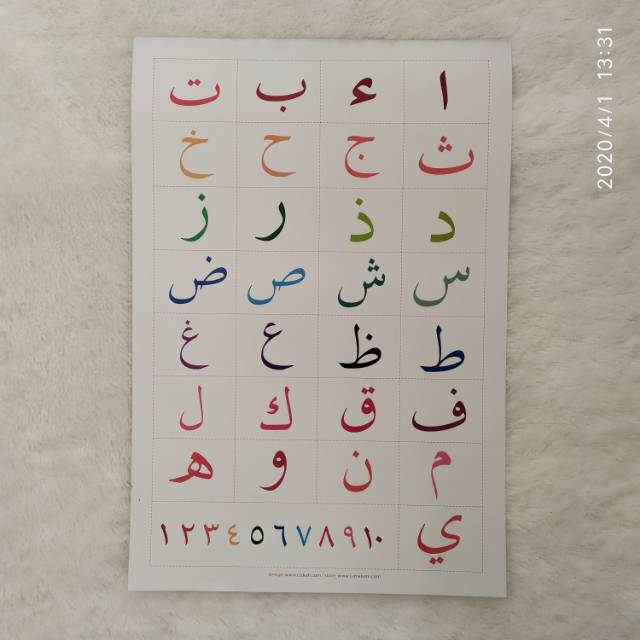 ا ء ب ت
ث ج ح خ
د ذ ر ز
س ش ص ض
ط ظ ع غ
ف ق ك ل
م ن و ه
ي ١ ٢ ٣ ٤ ٥ ٦ ٧ ٨ ٩ ١٠
2020/4/1 13:31